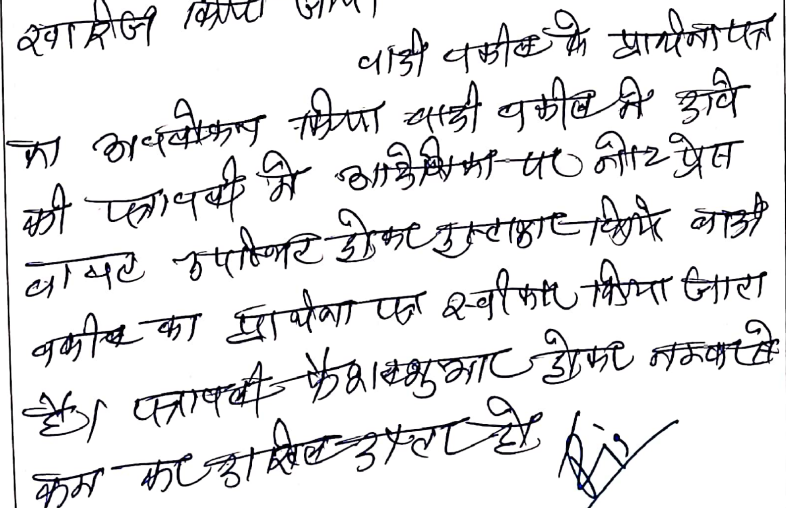 खारीज किया जावे।
वादी वकील के प्रार्थना पत्र
का अवलोकन किया वादी वकील ने दावे
की पत्रावली में आदेशिका पर नोट प्रेस
वास्ते उपस्थित होकर हस्ताक्षर किये वादी
वकील का प्रार्थना पत्र स्वीकार किया जाता
है। पत्रावली फैसलशुमार होकर नम्बर से
कम कर दाखिल दफ्तर हो